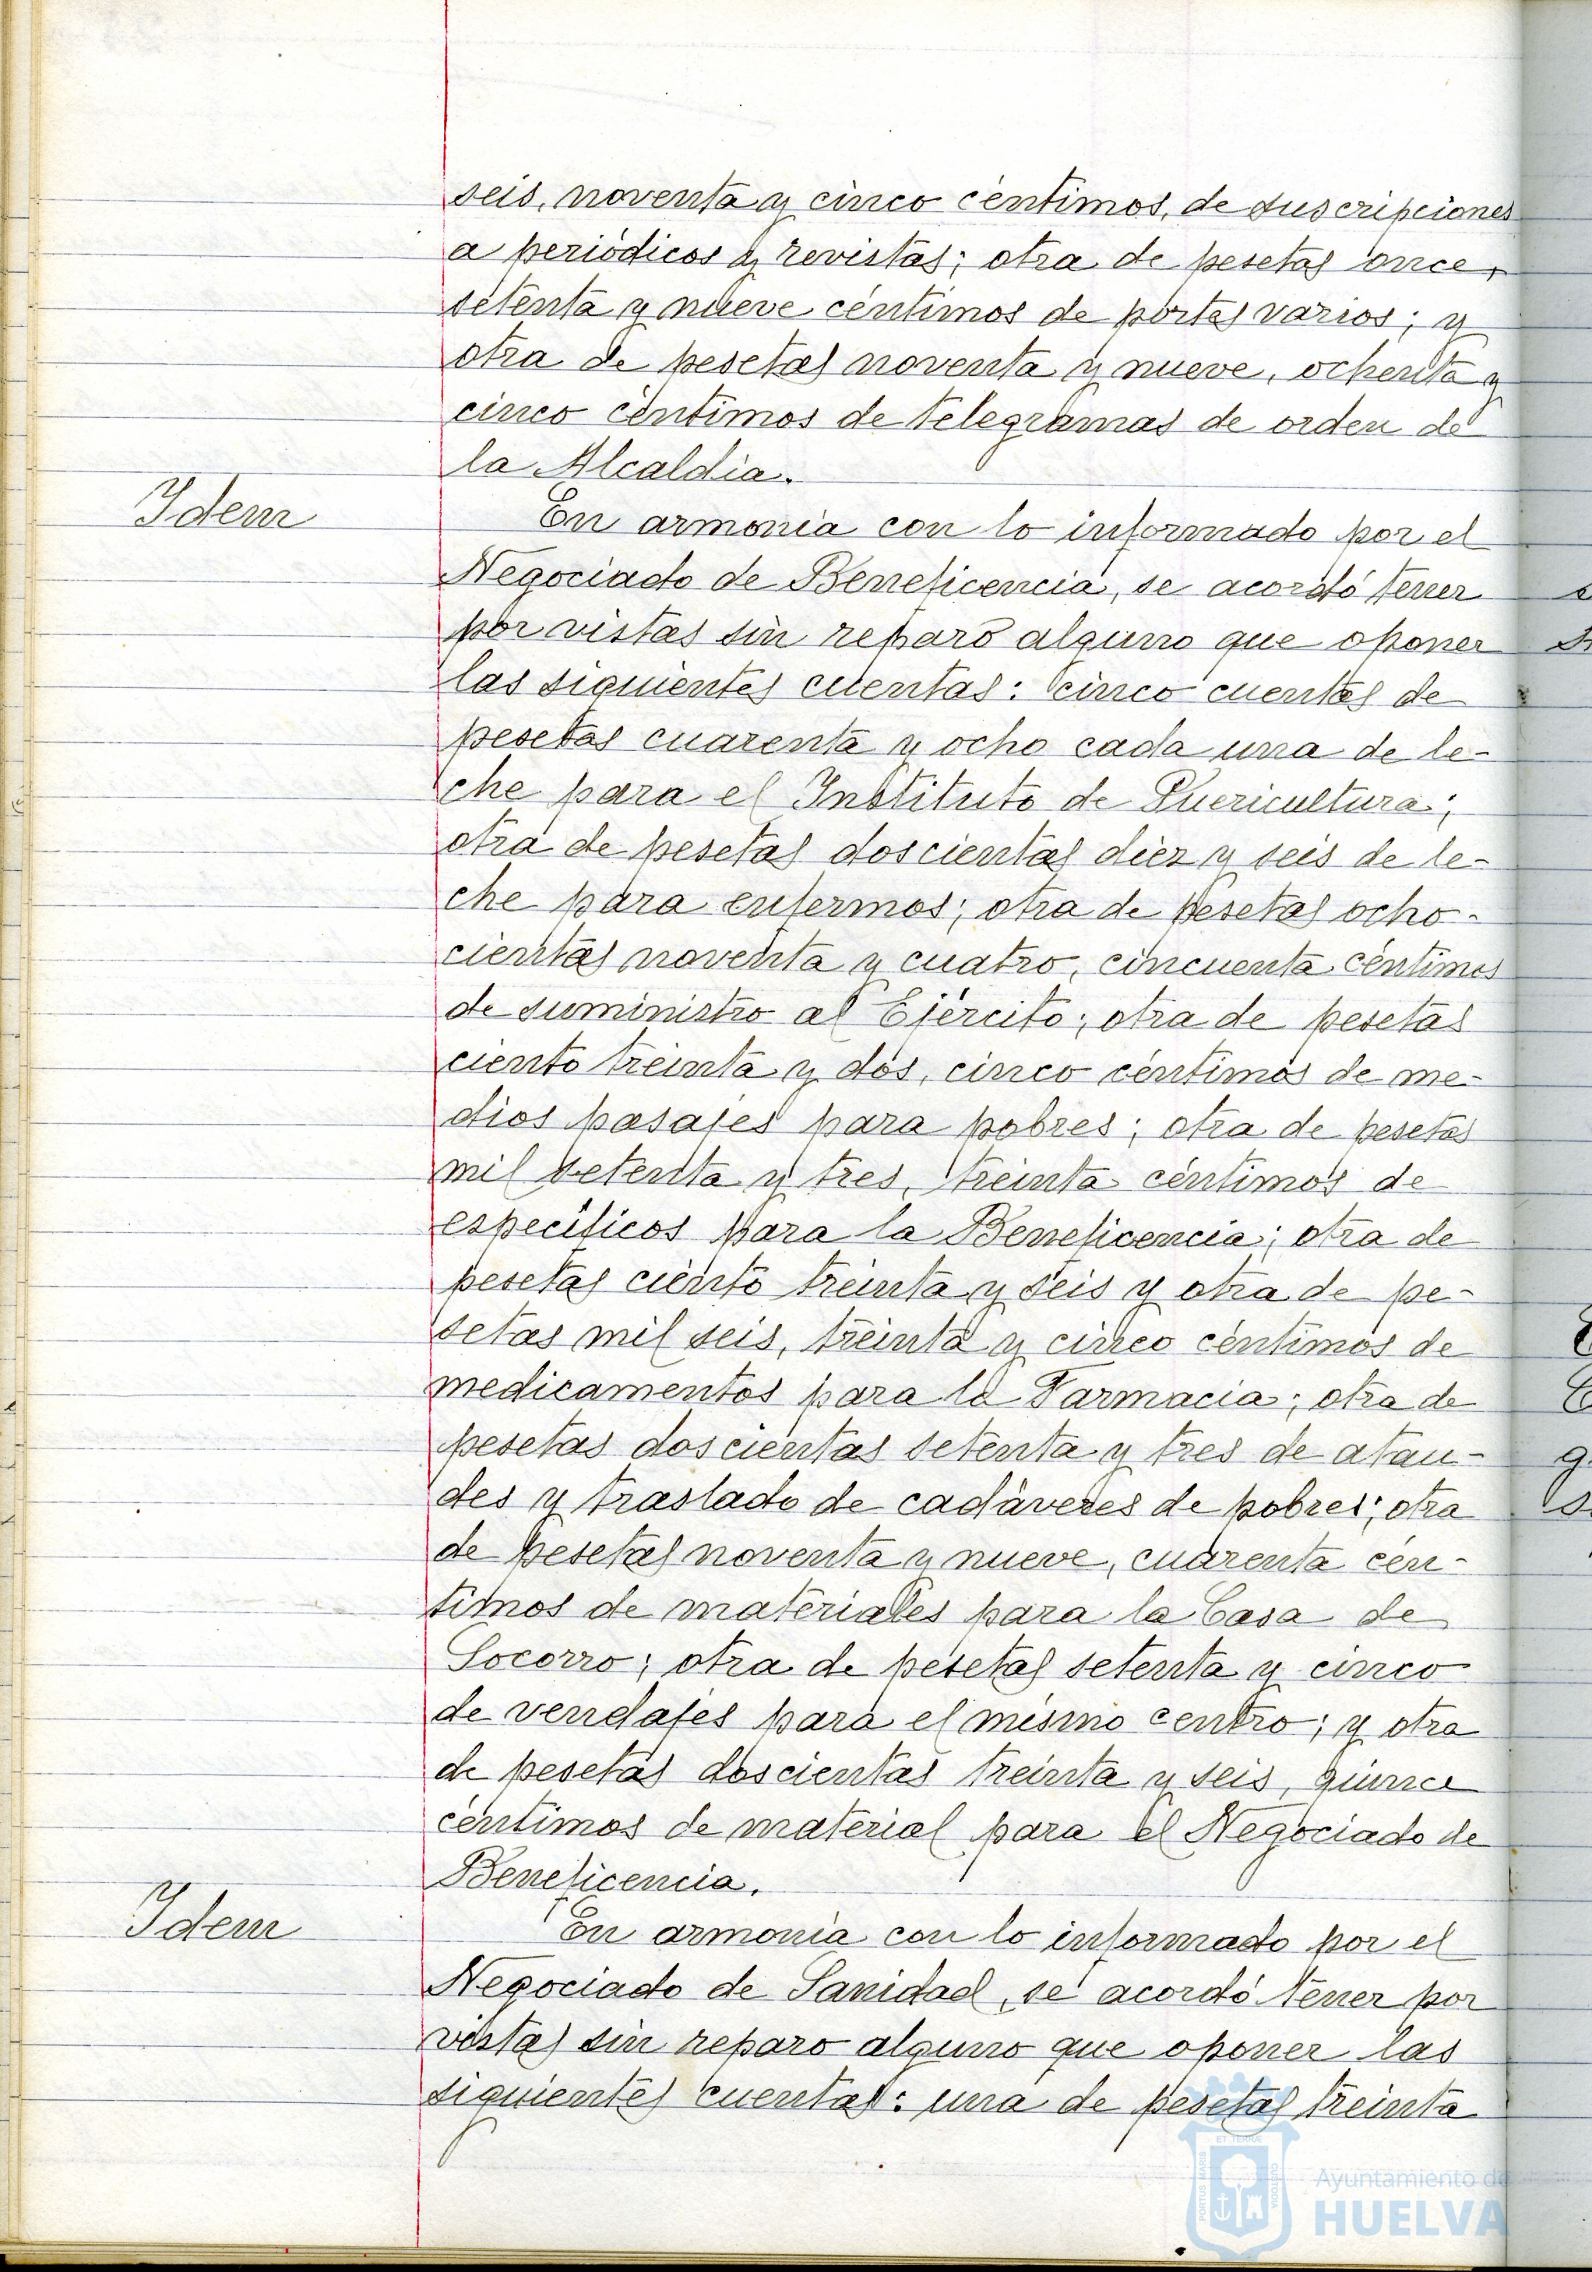 seis, noventa y cinco céntimos, de suscripciones
a periódicos y revistas; otra de pesetas once,
setenta y nueve céntimos de portes varios; y
otra de pesetas noventa y nueve, ochenta y
cinco céntimos de telegramas de orden de
la Alcaldía.
Idem
En armonía con lo informado por el
Negociado de Beneficencia, se acordó tener
por vistas sin reparo alguno que oponer
las siguientes cuentas: cinco cuentas de
pesetas cuarenta y ocho cada una de le-
che para el Instituto de Puericultura;
otra de pesetas doscientas diez y seis de le-
che para enfermos; otra de pesetas ocho-
cientas noventa y cuatro, cincuenta céntimos
de suministro al Ejército; otra de pesetas
ciento treinta y dos, cinco céntimos de me-
dios pasajes para pobres; otra de pesetas
mil setenta y tres, treinta céntimos de
específicos para la Beneficencia; otra de
pesetas ciento treinta y seis y otra de pe-
setas mil seis, treinta y cinco céntimos de
medicamentos para la Farmacia; otra de
pesetas doscientas setenta y tres de atau-
des y traslado de cadáveres de pobres; otra
de pesetas noventa y nueve, cuarenta cén-
timos de materiales para la Casa de
Socorro; otra de pesetas setenta y cinco
de vendajes para el mismo centro; y otra
de pesetas doscientas treinta y seis, quince
céntimos de material para el Negociado de
Beneficencia.
Idem
En armonía con lo informado por el
Negociado de Sanidad, se acordó tener por
vistas sin reparo alguno que oponer las
siguientes cuentas: una de pesetas treinta
PORTUS MARIS
ET TERRAE
CUSTODIA
Ayuntamiento de
HUELVA